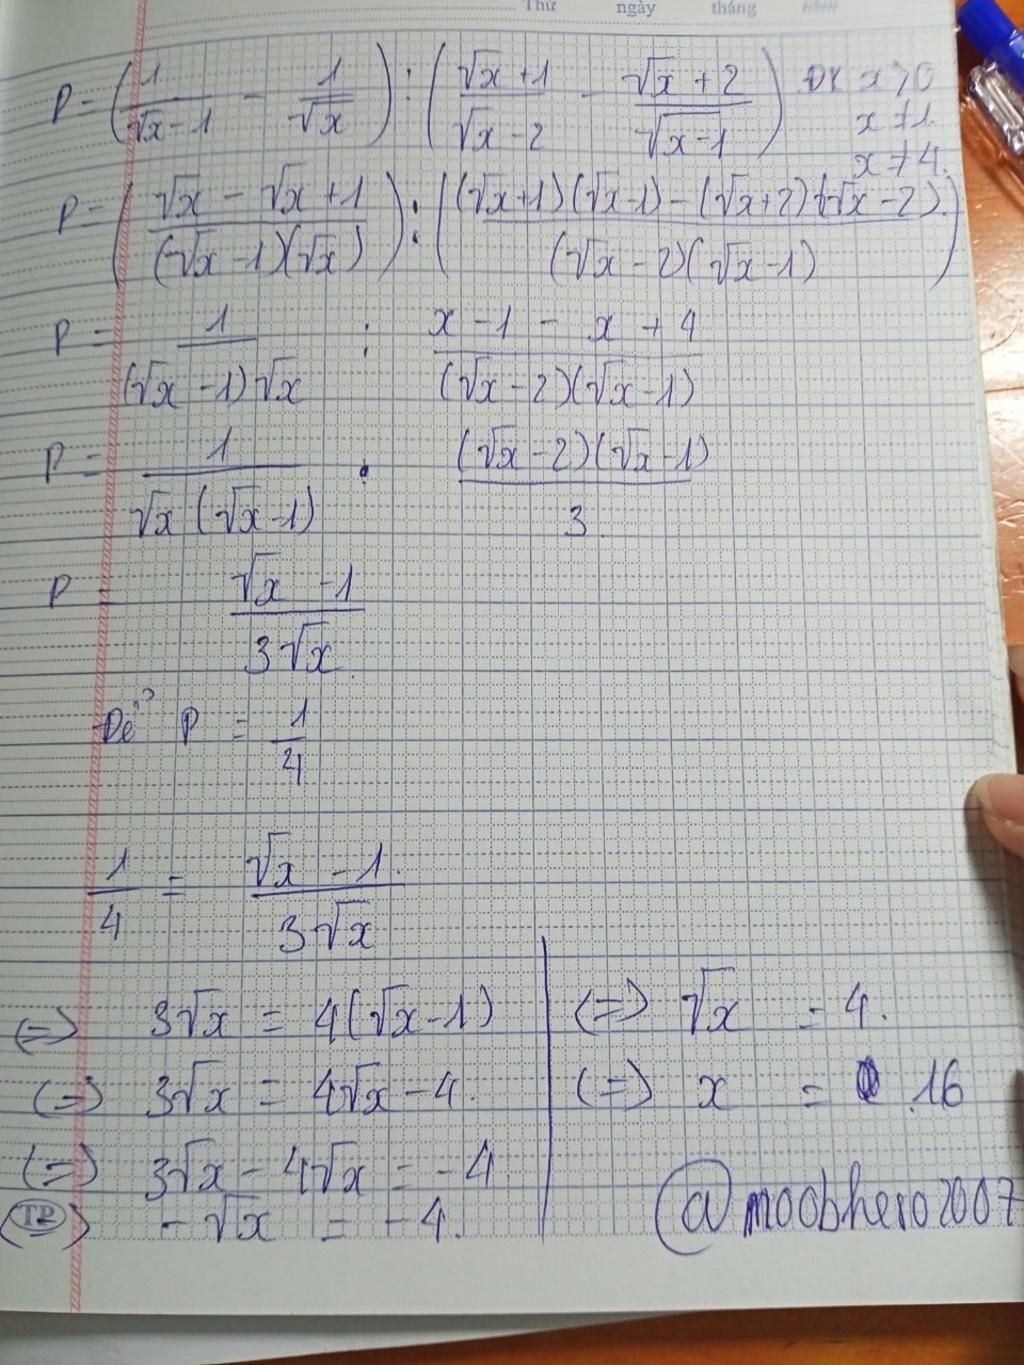 Thứ ngày tháng
P = (1/(√x - 1) - 1/√x) : ((√x + 1)/(√x - 2) - (√x + 2)/(√x - 1)) ĐK x > 0
x ≠ 1
x ≠ 4
P = ((√x - √x + 1)/((√x - 1)(√x))) : (((√x + 1)(√x - 1) - (√x + 2)(√x - 2))/((√x - 2)(√x - 1)))
P = 1/((√x - 1)√x) : (x - 1 - x + 4)/((√x - 2)(√x - 1))
P = 1/(√x(√x - 1)) . ((√x - 2)(√x - 1))/3
P (√x - 1)/(3√x)
Để P = 1/4
1/4 = (√x - 1)/(3√x)
(=) 3√x = 4(√x - 1)
(=) 3√x = 4√x - 4
(=) 3√x - 4√x = -4
- √x = -4
(=) √x = 4.
(=) x = 16
@moobhero2007